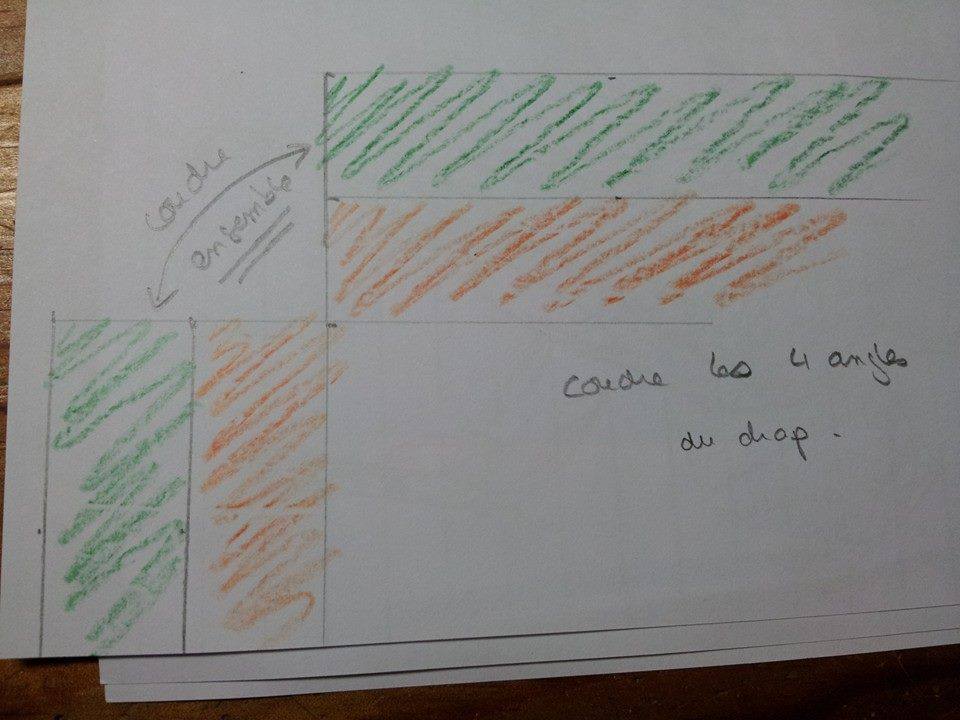 coudre
ensemble
coudre les 4 angles
du drap.